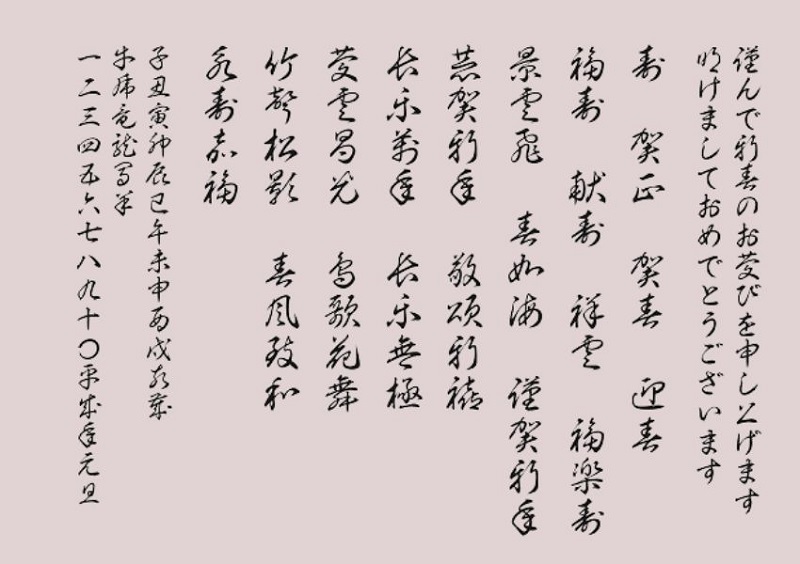 謹んで新春のお慶びを申し上げます
明けましておめでとうございます
寿 賀正 賀春 迎春
福寿 献寿 祥雲 福楽寿
景雲飛 春如海 謹賀新年
恭賀新年 敬頌新禧
長乐萬年 長乐無極
慶雲昌光 鳥歌花舞
竹聲松影 春風致和
永寿嘉福
子丑寅卯辰巳午未申酉戌亥歳
牛虎竜龍馬羊
一二三四五六七八九十〇平成年元旦